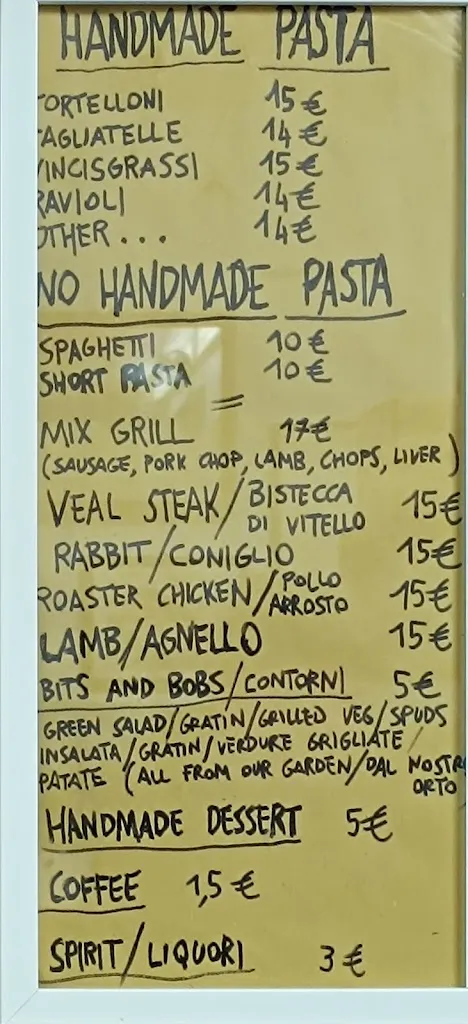 HANDMADE PASTA
TORTELLONI 15€
TAGLIATELLE 14€
VINCISGRASSI 15€
RAVIOLI 14€
OTHER... 14€
NO HANDMADE PASTA
SPAGHETTI 10€
SHORT PASTA 10€
MIX GRILL 17€
(SAUSAGE, PORK CHOP, LAMB, CHOPS, LIVER)
VEAL STEAK/BISTECCA DI VITELLO 15€
RABBIT/CONIGLIO 15€
ROASTER CHICKEN/POLLO ARROSTO 15€
LAMB/AGNELLO 15€
BITS AND BOBS/CONTORNI 5€
GREEN SALAD/GRATIN/GRILLED VEG/SPUDS
INSALATA/GRATIN/VERDURE GRIGLIATE/
PATATE (ALL FROM OUR GARDEN/DAL NOSTR
ORTO
HANDMADE DESSERT 5€
COFFEE 1,5€
SPIRIT/LIQUORI 3€